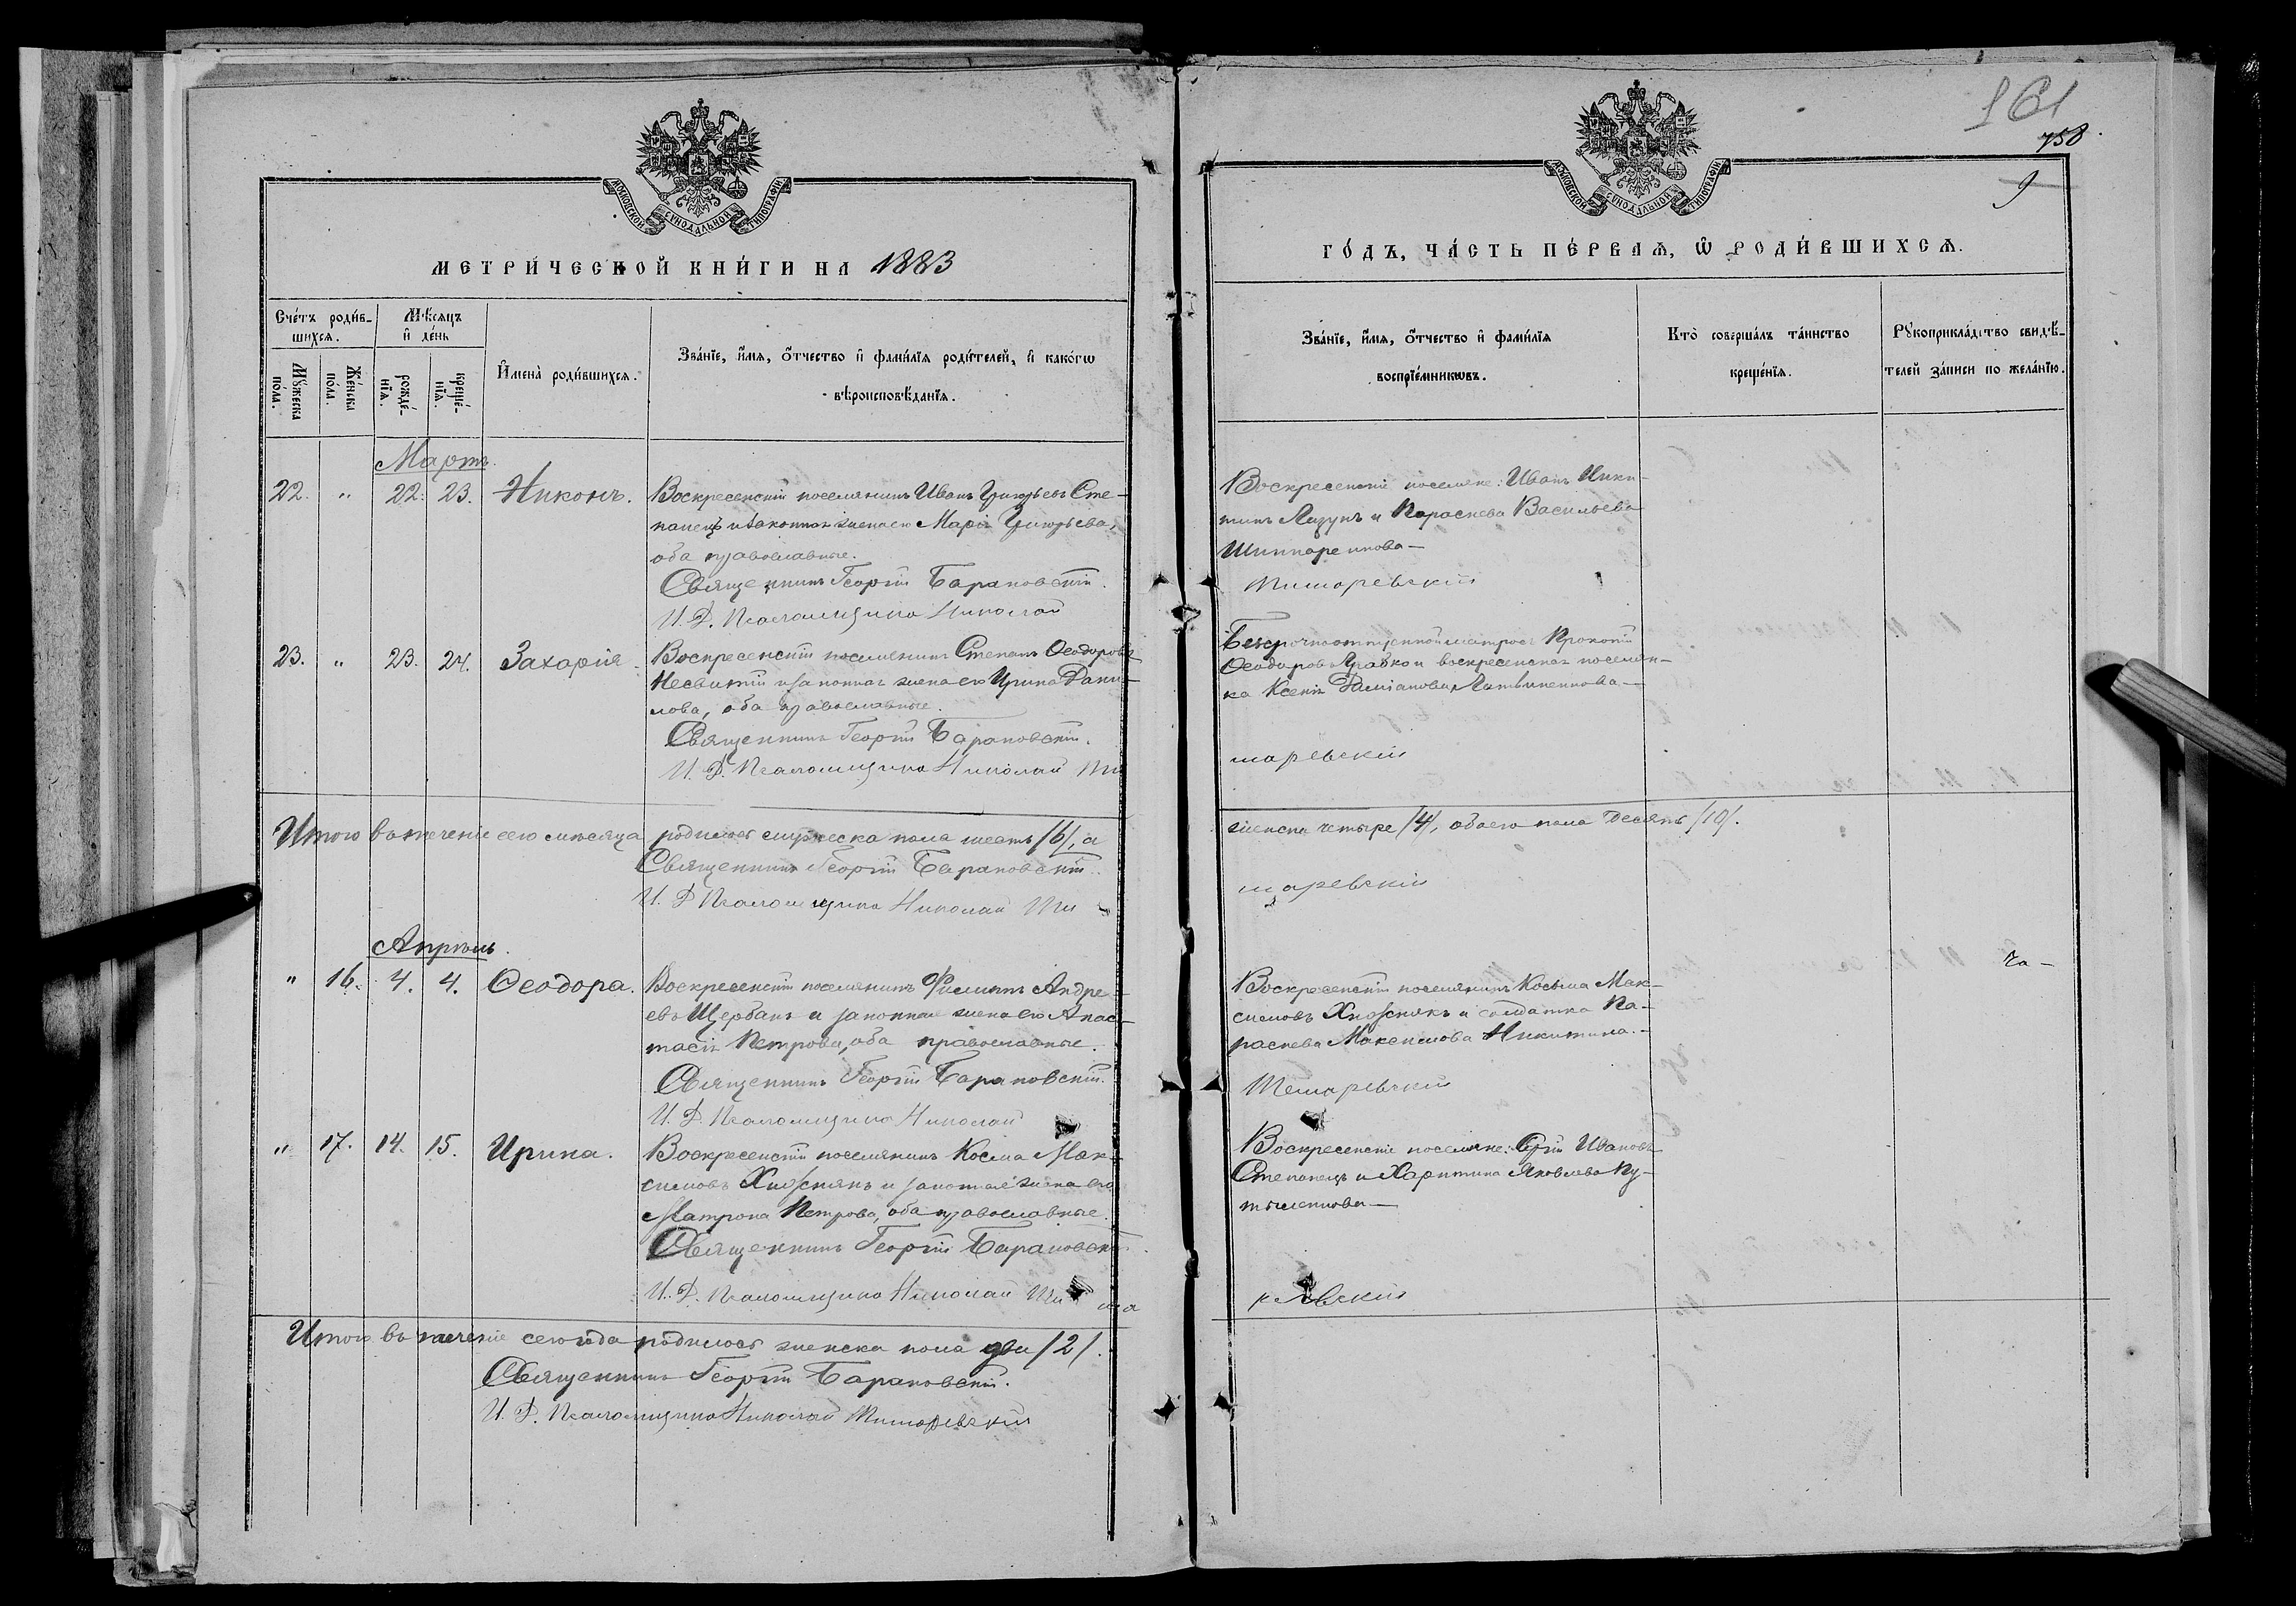 МОСКОВСКОЙ СѴНОДАЛЬНОЙ ТИПОГРАФІИ
МЕТРИ́ЧЕСКОЙ КНИ́ГИ НА 1883
Сче́тъ роди́в-
шихсѧ.
Мѣ́сѧцъ
и҆ де́нь
Мꙋ́жеска по́ла.
Же́нска по́ла.
рожде́-
нїѧ.
креще́-
нїѧ.
И҆мена̀ роди́вшихсѧ.
Зва́нїе, и҆́мѧ, ѻ҆́тчество и҆ фами́лїѧ роди́телей, и҆ како́гѡ
вѣроисповѣ́данїѧ.
Мартъ.
22. " 22. 23. Никонъ.
Воскресенскій поселянинъ Иванъ Григорьевъ Сте-
панецъ и законная жена его Марія Григорьева,
оба православные.
Священникъ Георгій Барановскій.
И. Д. Псаломщика Николай
23. " 23. 24. Захарія.
Воскресенскій поселянинъ Стефанъ Ѳеодоровъ
Несвитій и законная жена его Ирина Дани-
лова, оба православные.
Священникъ Георгій Барановскій.
И. Д. Псаломщика Николай Ши
Итого въ теченіе сего мѣсяца родилось мужеска пола шесть /6/, а
Священникъ Георгій Барановскій.
И. Д. Псаломщика Николай Ши
Апрѣль.
" 16. 4. 4. Ѳеодора.
Воскресенскій поселянинъ Филиппъ Андре-
евъ Щербань и законная жена его Анас-
тасія Петрова, оба православные.
Священникъ Георгій Барановскій.
И. Д. Псаломщика Николай
" 17. 14. 15. Ирина.
Воскресенскій поселянинъ Косма Мак-
симовъ и законная жена его
Матрона Петрова, оба православные.
Священникъ Георгій Барановскій.
И. Д. Псаломщика Николай Ши
Итого въ теченіе сего года родилось женска пола два /2/.
Священникъ Георгій Барановскій.
И. Д. Псаломщика Николай Шишаревскій
161
758
9
МОСКОВСКОЙ СѴНОДАЛЬНОЙ ТИПОГРАФІИ
ГО́ДЪ, ЧА́СТЬ ПЕ́РВАѦ, Ѡ҆ РОДИ́ВШИХСѦ.
Зва́нїе, и҆́мѧ, ѻ҆́тчество и҆ фами́лїѧ
воспрїе́мникѡвъ.
Кто̀ соверша́лъ та́инство
креще́нїѧ.
Рꙋкоприкла́дство свидѣ́-
телей за́писи по жела́нїю.
Воскресенскіе поселяне: Иванъ Ники-
тинъ Лазунъ и Параскева Васильева
Шинкаренкова —
Шишаревскій
Безсрочноотпускной матросъ Прокопій
Ѳеодоровъ и воскресенская поселян-
ка Ксенія Даміанова Литвиненкова —
шаревскій
женска четыре /4/, обоего пола десять /10/.
шаревскій
Воскресенскій поселянинъ Косьма Мак-
симовъ и солдатка Па-
раскева Максимова Никитина. —
Шишаревскій
Воскресенскіе поселяне: Сергій Ивановъ
Степанецъ и Харитина Яковлева
ревскій